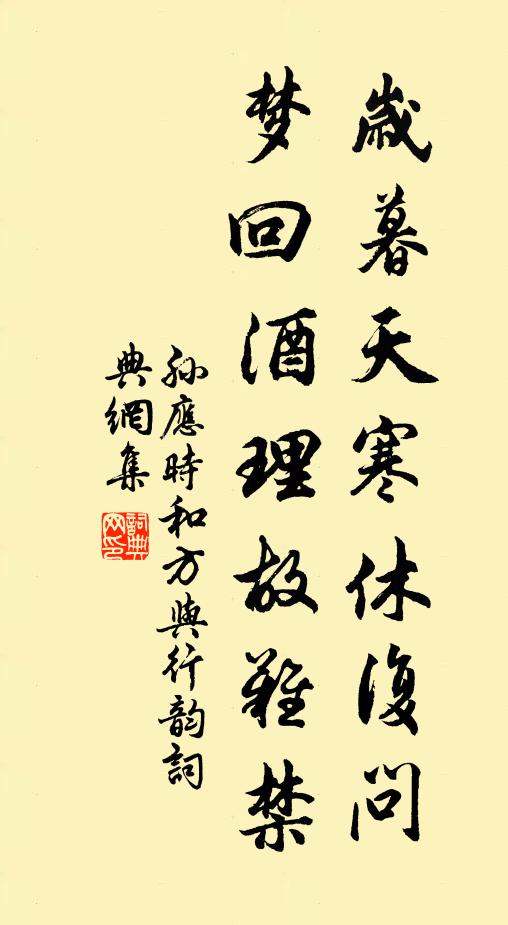 歲暮天寒休復問
梦回酒理故難禁
孙應時和方與行韵詞
典網集
詞典
网印